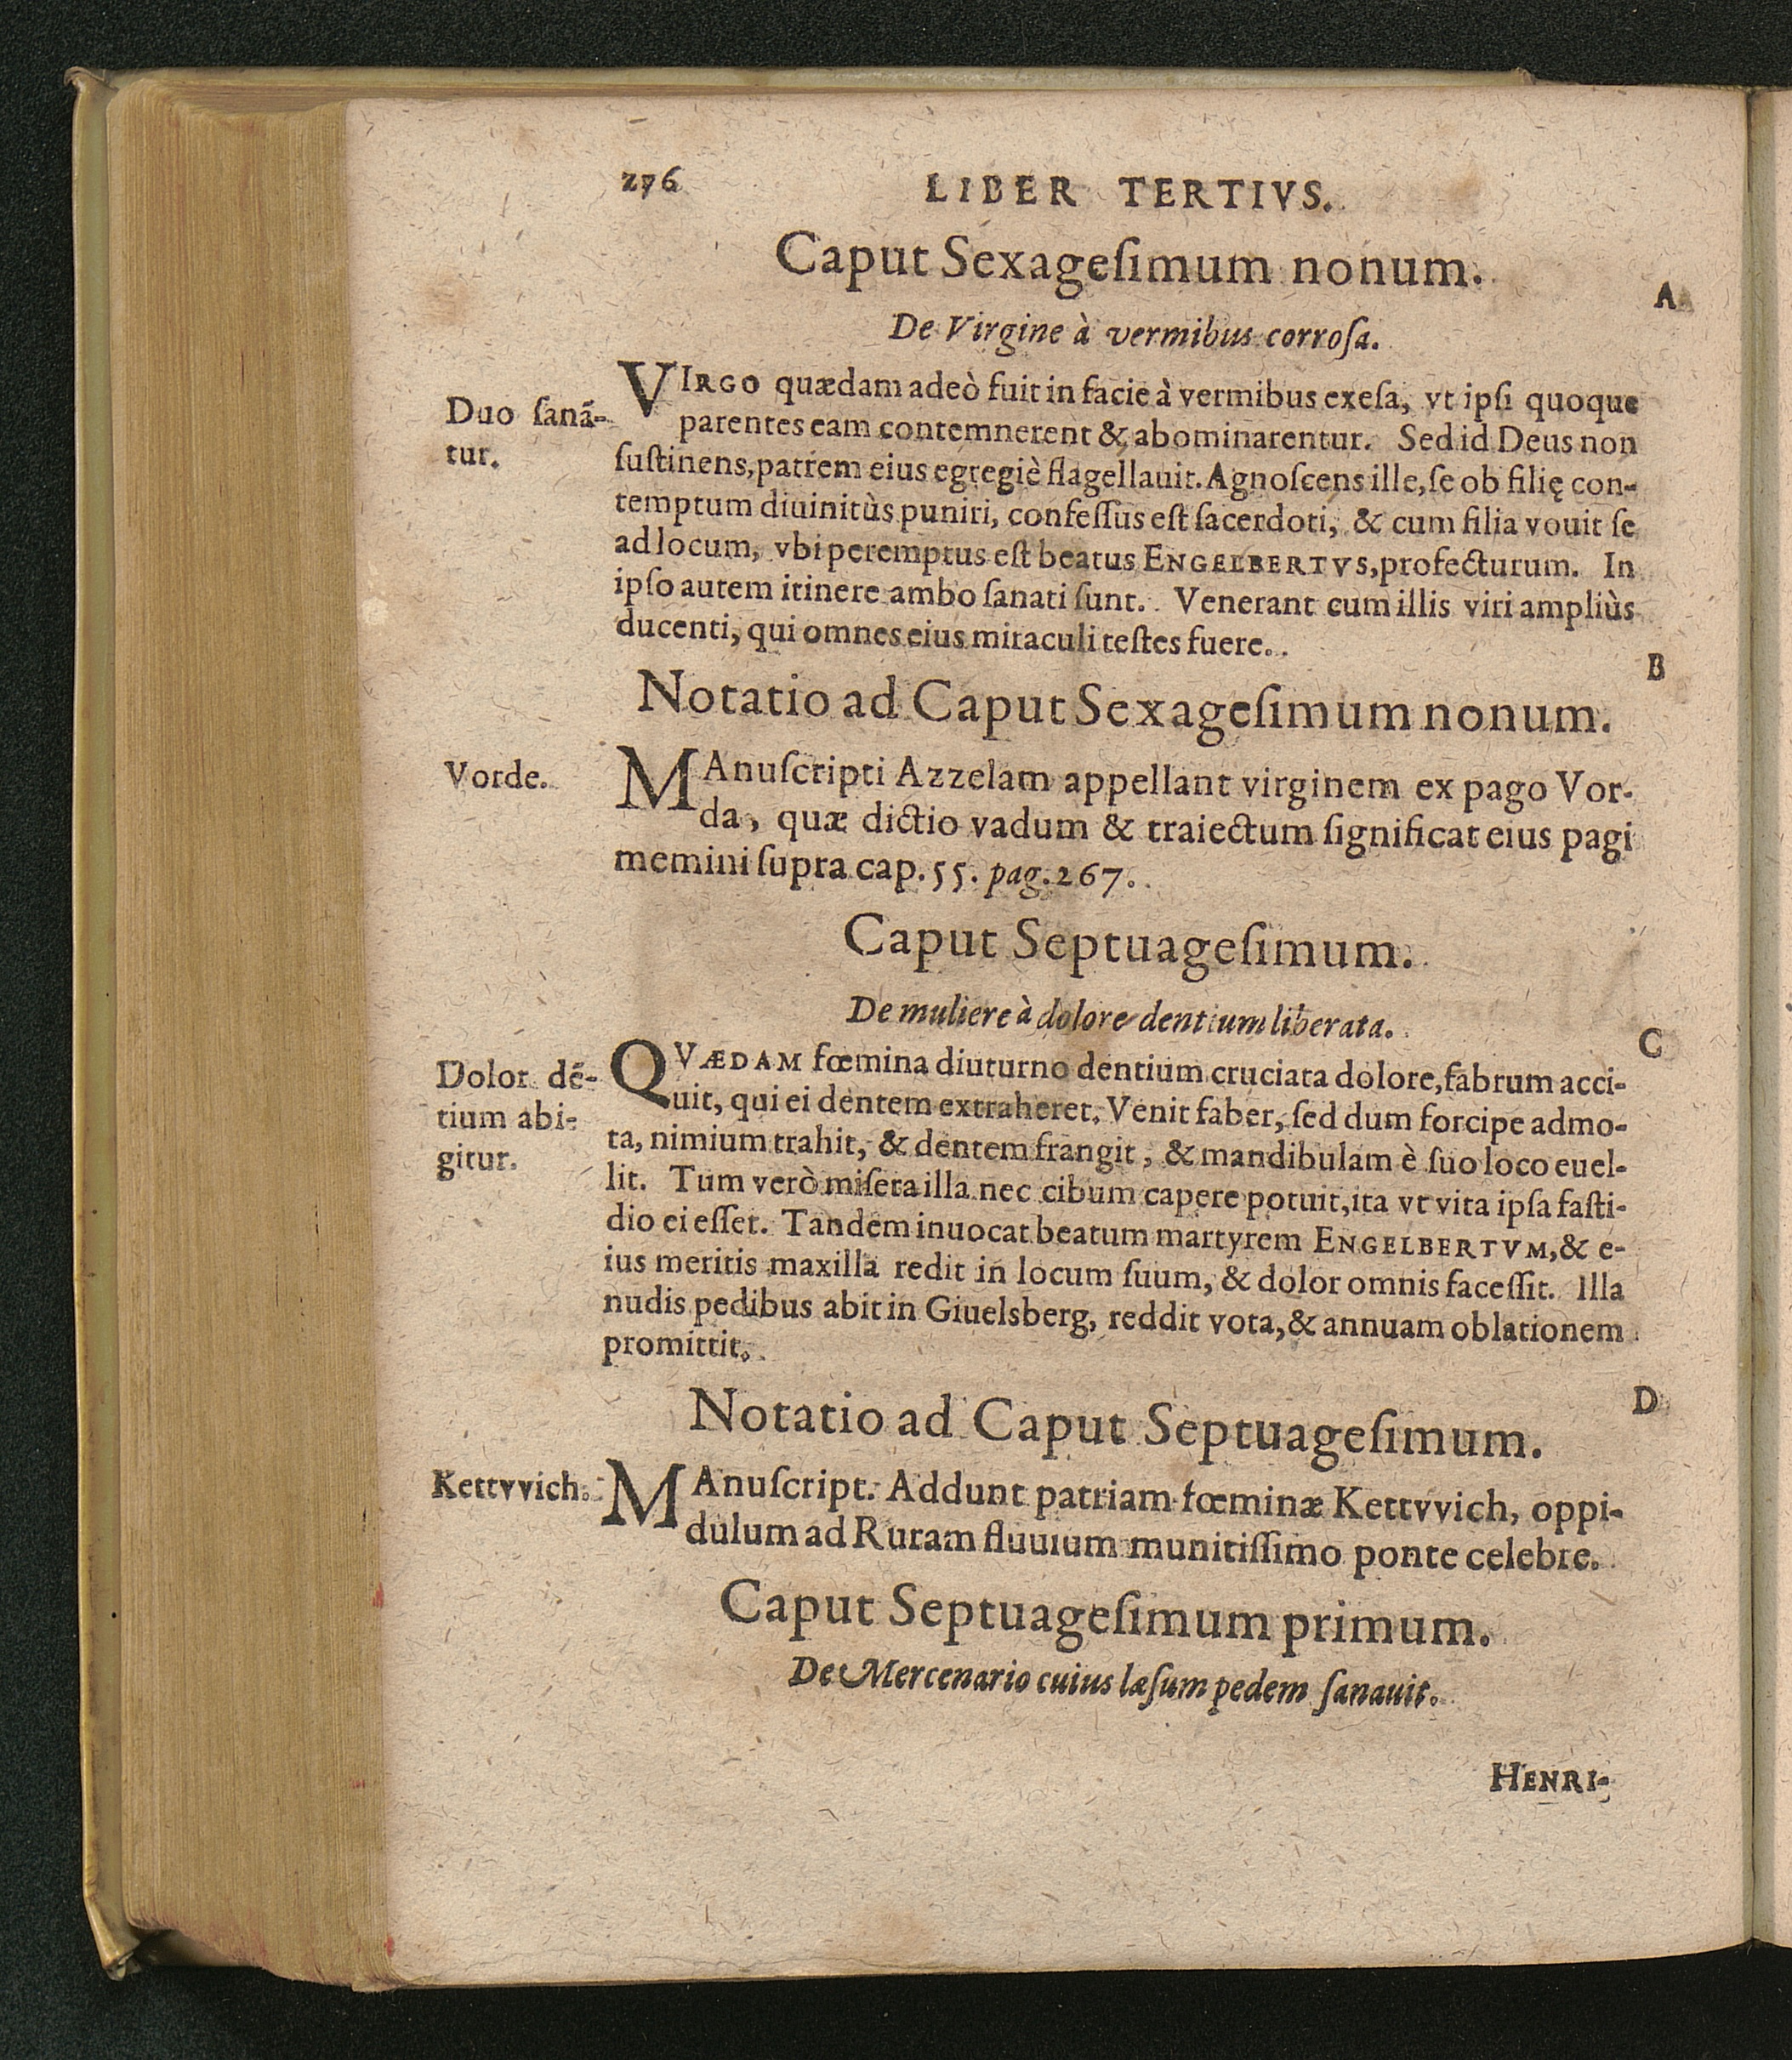 276
LIBER TERTIVS.
Caput Sexageſimum nonum.
A
De Virgine à vermibus corroſa.
Duo ſanā-
tur.
VIRGO quædam adeò fuit in facie à vermibus exeſa, vt ipſi quoque
parentes eam contemnerent & abominarentur. Sed id Deus non
ſuſtinens, patrem eius egregiè flagellauit. Agnoſcens ille, ſe ob filię con-
temptum diuinitùs puniri, confeſſus eſt ſacerdoti, & cum filia vouit ſe
ad locum, vbi peremptus eſt beatus ENGELBERTVS, profecturum. In
ipſo autem itinere ambo ſanati ſunt. Venerant cum illis viri ampliùs
ducenti, qui omnes eius miraculi teſtes fuere.
B
Notatio ad Caput Sexageſimum nonum.
Vorde.
MAnuſcripti Azzelam appellant virginem ex pago Vor-
da, quæ dictio vadum & traiectum ſignificat eius pagi
memini ſupra cap. 55. pag. 267.
Caput Septuageſimum.
De muliere à dolore dentium liberata.
C
Dolor dē-
tium abi-
gitur.
QVÆDAM fœmina diuturno dentium cruciata dolore, fabrum acci-
uit, qui ei dentem extraheret. Venit faber, ſed dum forcipe admo-
ta, nimium trahit, & dentem frangit, & mandibulam è ſuo loco euel-
lit. Tum verò miſera illa nec cibum capere potuit, ita vt vita ipſa faſti-
dio ei eſſet. Tandem inuocat beatum martyrem ENGELBERTVM, & e-
ius meritis maxilla redit in locum ſuum, & dolor omnis faceſſit. Illa
nudis pedibus abit in Giuelsberg, reddit vota, & annuam oblationem
promittit.
D
Notatio ad Caput Septuageſimum.
Kettvvich.
MAnuſcript. Addunt patriam fœminæ Kettvvich, oppi-
dulum ad Ruram fluuium munitiſſimo ponte celebre.
Caput Septuageſimum primum.
De Mercenario cuius læſum pedem ſanauit.
HENRI-